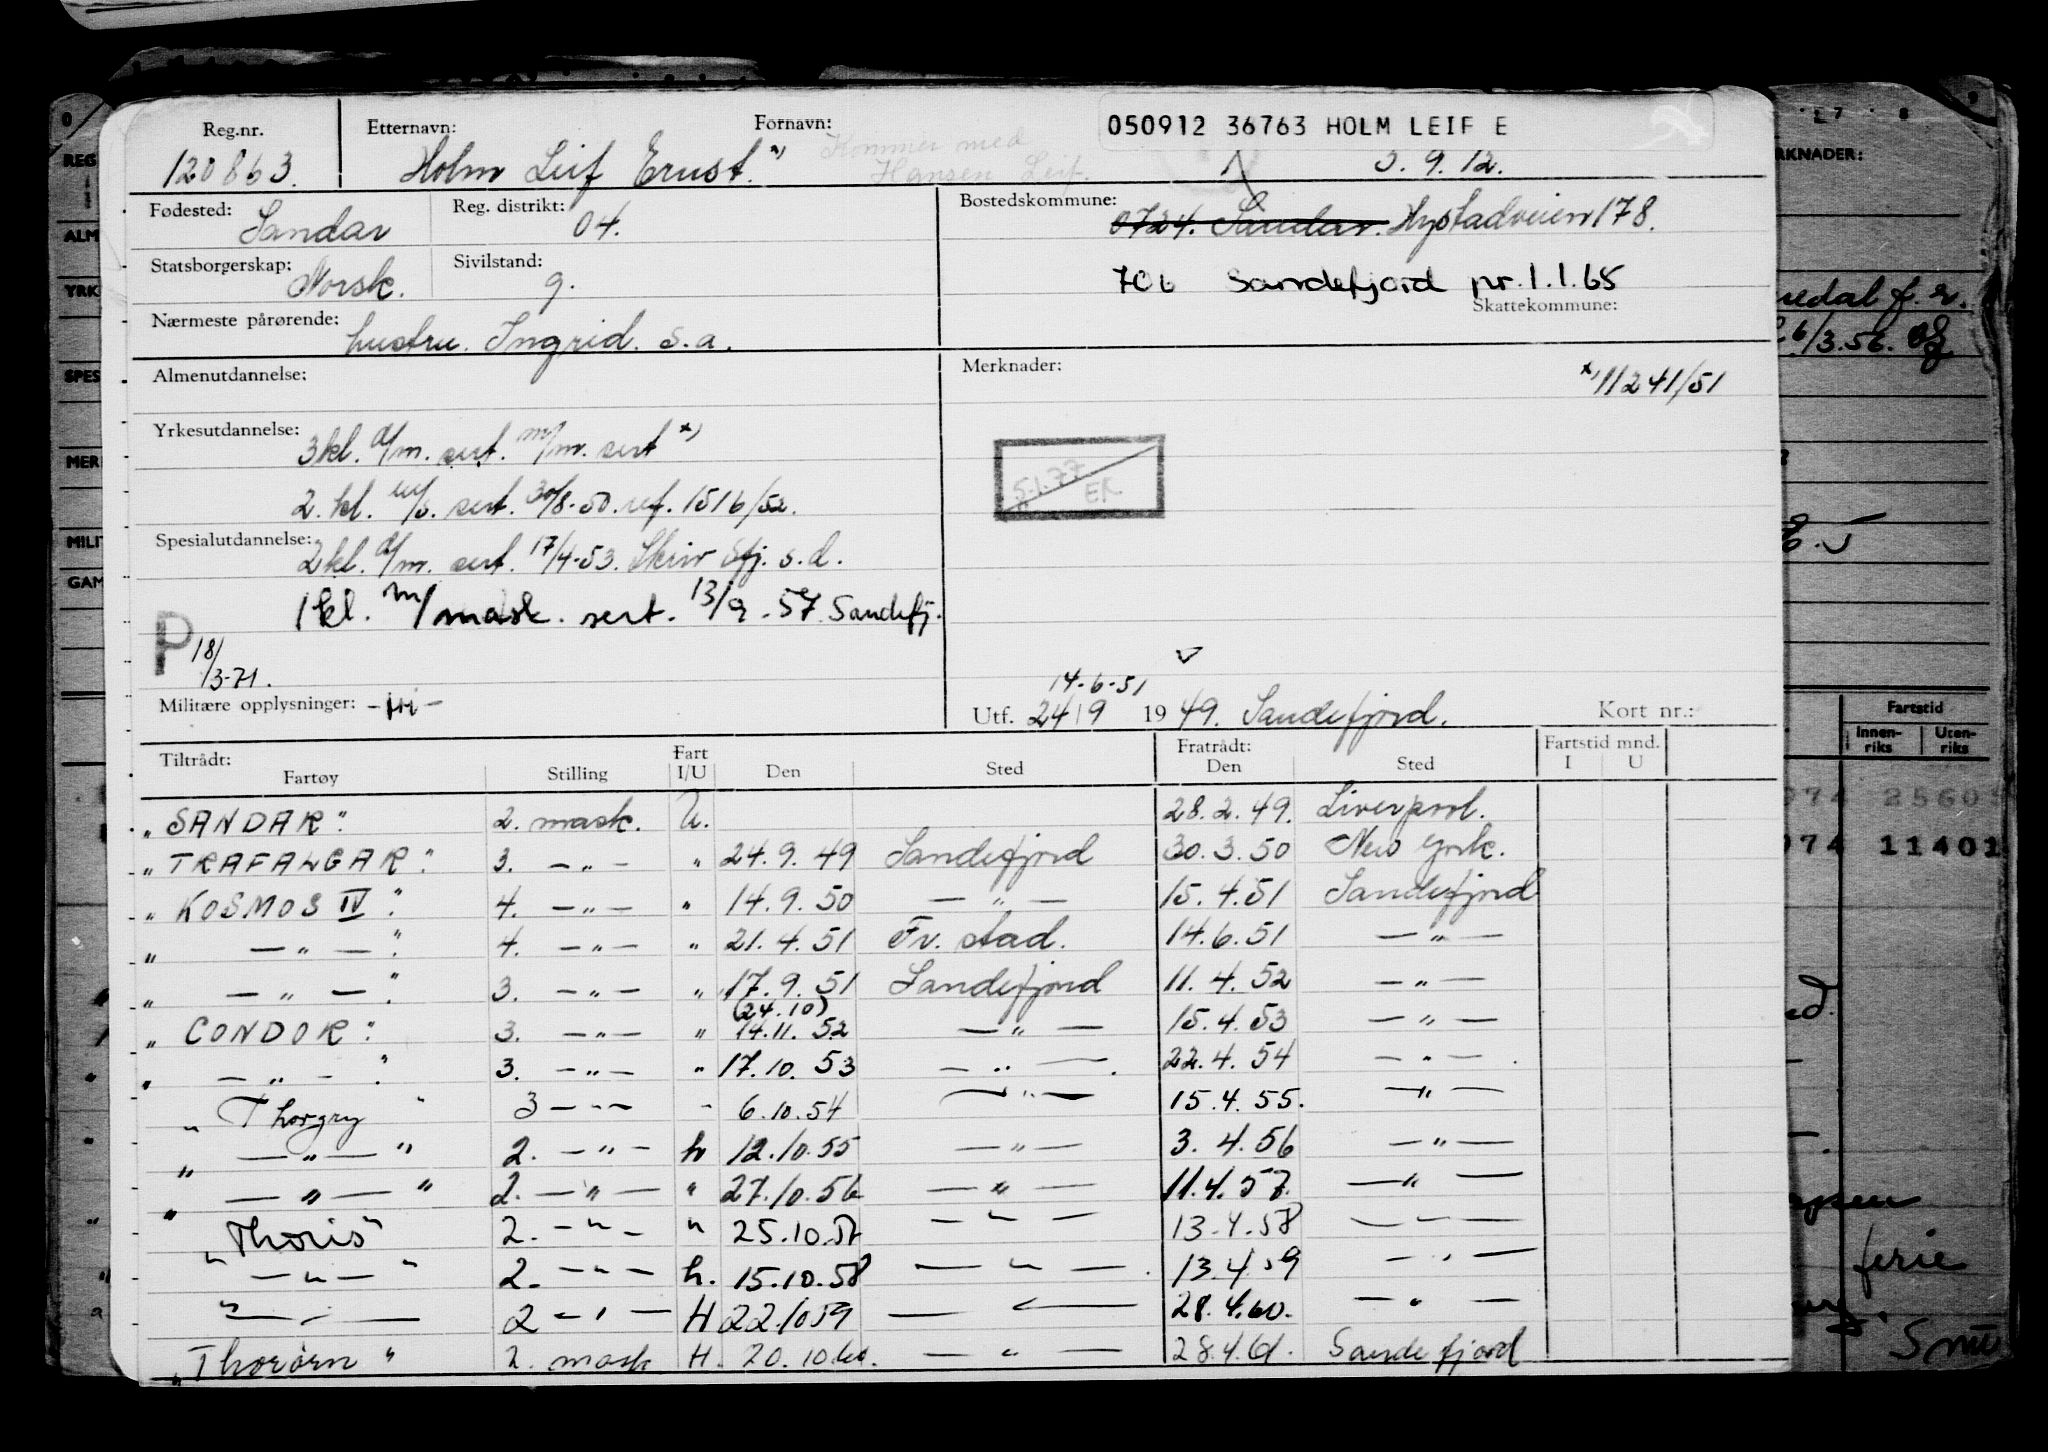 Reg.nr. Etternavn: Fornavn: 050912 36763 HOLM LEIF E
120863. Holm Leif Ernst. x) Kommer med Hansen Leif. 5. 9. 12.
Fødested: Sandar Reg. distrikt: 04. Bostedskommune: 0724. Sandar. Hystadveien 178.
Statsborgerskap: Norsk. Sivilstand: g. 706 Sandefjord pr. 1.1.68
Skattekommune:
Nærmeste pårørende: hustru. Ingrid. s.a.
Almenutdannelse: Merknader: x) 11241/51
Yrkesutdannelse: 3 kl. d/m. sert. m/m. sert x)
5.1.77 EK
2. kl. m/s. sert. 30/8-50. ref. 1516/52.
Spesialutdannelse: 2 kl. d/m. sert. 17/4-53. Skriv Sfj. s.d.
1 kl. m/mask. sert. 13/9-57 Sandefj.
P 18/3-71.
14-6-51
Militære opplysninger: Utf. 24/9 1949. Sandefjord. Kort nr.:
Tiltrådt: Fart Fratrådt: Fartstid mnd.
Fartøy Stilling I/U Den Sted Den Sted I U
„ SANDAR". 2. mask. U. 28.2.49. Liverpool.
„ TRAFALGAR". 3. — " — " 24.9.49 Sandefjord 30.3.50 New York.
„ KOSMOS IV". 4. — " — " 14.9.50 — " — 15.4.51 Sandefjord
„ — " — ". 4. — " — " 21.4.51 Fr. stad. 14.6.51 — " —
„ — " — ". 3. — " — " 17.9.51 Sandefjord 11.4.52 — " —
(24.10)
„ CONDOR". 3. — " — " 14.11.52 — " — 15.4.53 — " —
„ — " — ". 3. — " — " 17.10.53 — " — 22.4.54 — " —
„ Thorgry " 3 — " — " 6.10.54 — " — 15.4.55. — " —
„ — " — " 2. — " — h 12.10.55 — " — 3.4.56 — " —
„ — " — " 2. — " — " 27.10.56 — " — 11.4.57. — " —
„ Thoris" 2. — " — " 25.10.57 — " — 13.4.58 — " —
„ — " — " 2. — " — h. 15.10.58 — " — 13.4.59 — " —
" — " — 2 — " — H 22.10 59 — " — 28.4.60. — " —
„ Thorørn " 2. mask H. 20.10.60. — " — 28.4.61. Sandefjord
REG
ALM
YRK
SPES
MER
MILI
GAM
RKNADER:
6/3.56.
Fartstid
Innen-riks Uten-riks
074 25605
074 11401
ferie